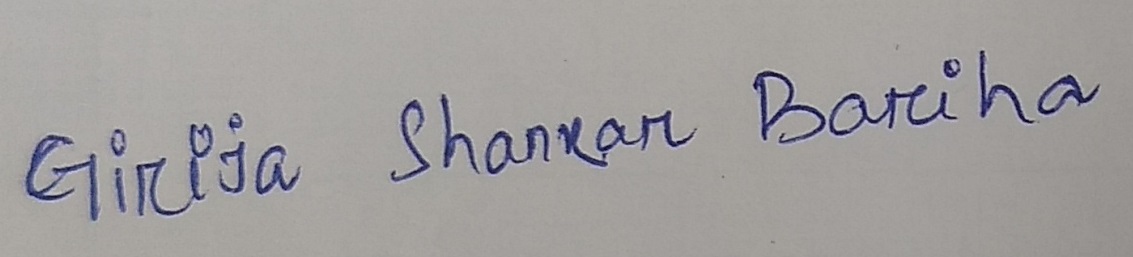 Girija Shankar Bariha